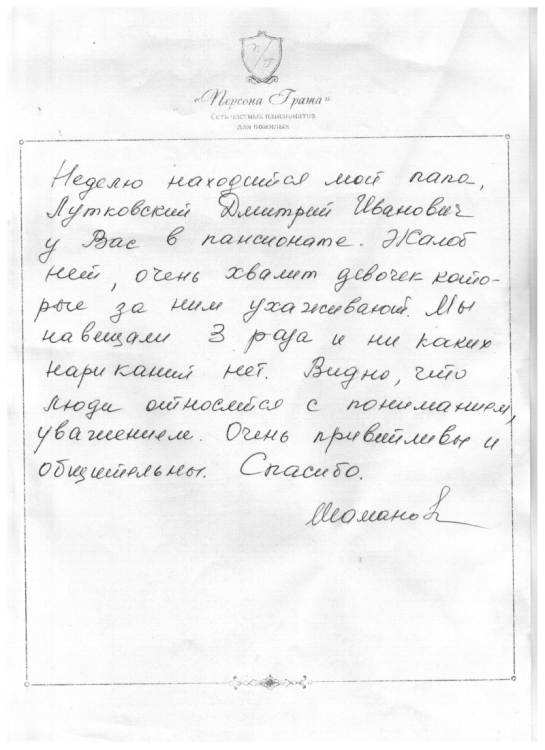 «Персона Грата»
Сеть частных пансионатов
для пожилых
Неделю находится мой папа,
Лутковский Дмитрий Иванович
у Вас в пансионате. Жалоб
нет, очень хвалит девочек кото-
рые за ним ухаживают. Мы
навещали 3 раза и ни каких
нариканий нет. Видно, что
люди относятся с пониманием,
уважением. Очень приветливы и
общительны. Спасибо.